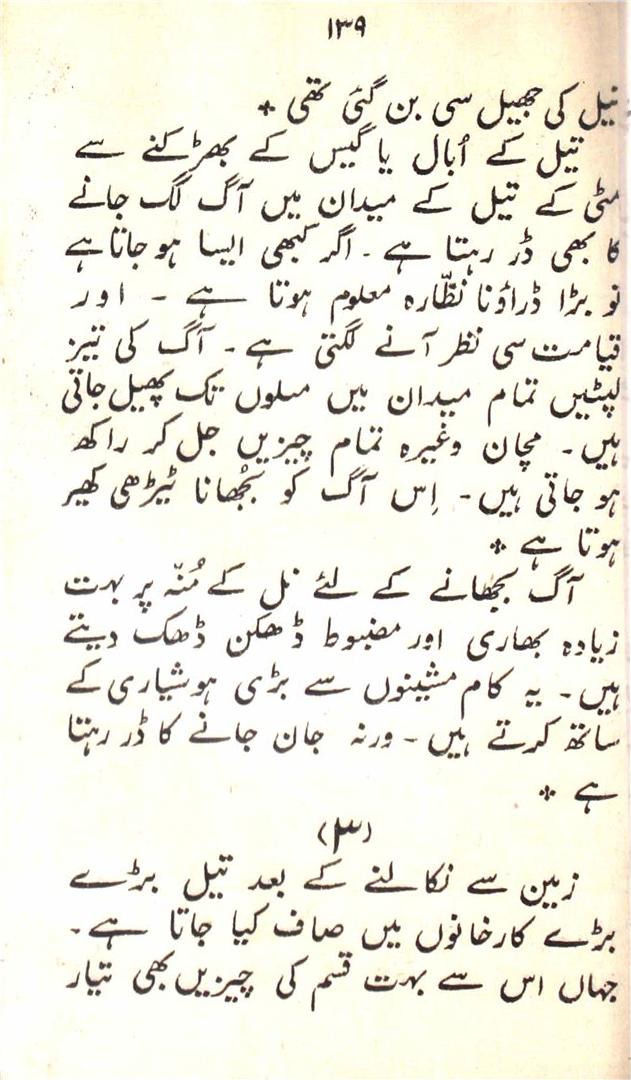 ۱۳۹
تیل کی جھیل سی بن گئی تھی ٭
تیل کے اُبال یا گیس کے بھڑکنے سے
مٹی کے تیل کے میدان میں آگ لگ جانے
کا بھی ڈر رہتا ہے ۔ اگر کبھی ایسا ہو جاتا ہے
تو بڑا ڈراؤنا نظّارہ معلوم ہوتا ہے ۔ اور
قیامت سی نظر آنے لگتی ہے ۔ آگ کی تیز
لپٹیں تمام میدان میں میلوں تک پھیل جاتی
ہیں ۔ مچان وغیرہ تمام چیزیں جل کر راکھ
ہو جاتی ہیں ۔ اِس آگ کو بُجھانا ٹیڑھی کھیر
ہوتا ہے ٭
آگ بجھانے کے لئے نل کے مُنّہ پر بہت
زیادہ بھاری اور مضبوط ڈھکن ڈھک دیتے
ہیں ۔ یہ کام مشینوں سے بڑی ہوشیاری کے
ساتھ کرتے ہیں ۔ ورنہ جان جانے کا ڈر رہتا
ہے ٭
(۳)
زمین سے نکالنے کے بعد تیل بڑے
بڑے کارخانوں میں صاف کیا جاتا ہے ۔
جہاں اس سے بہت قسم کی چیزیں بھی تیار